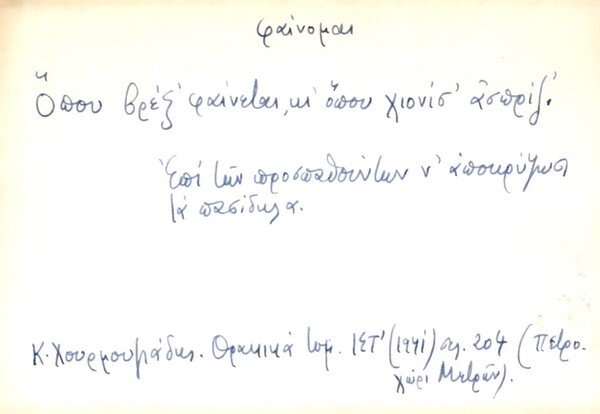 φαίνομαι
Ὅπου βρέξ' φαίνεται, κι' ὅπου χιονίσ' ἀσπρίζ'.
Ἐπί τῶν προσπαθούντων ν' ἀποκρύψωσι
τά πασίδηλα.
Κ. Χουρμουζιάδης. Θρακικά τομ. ΙΣΤ' (1941) σελ. 204 (Πετρο-
χώρι Μετρῶν).